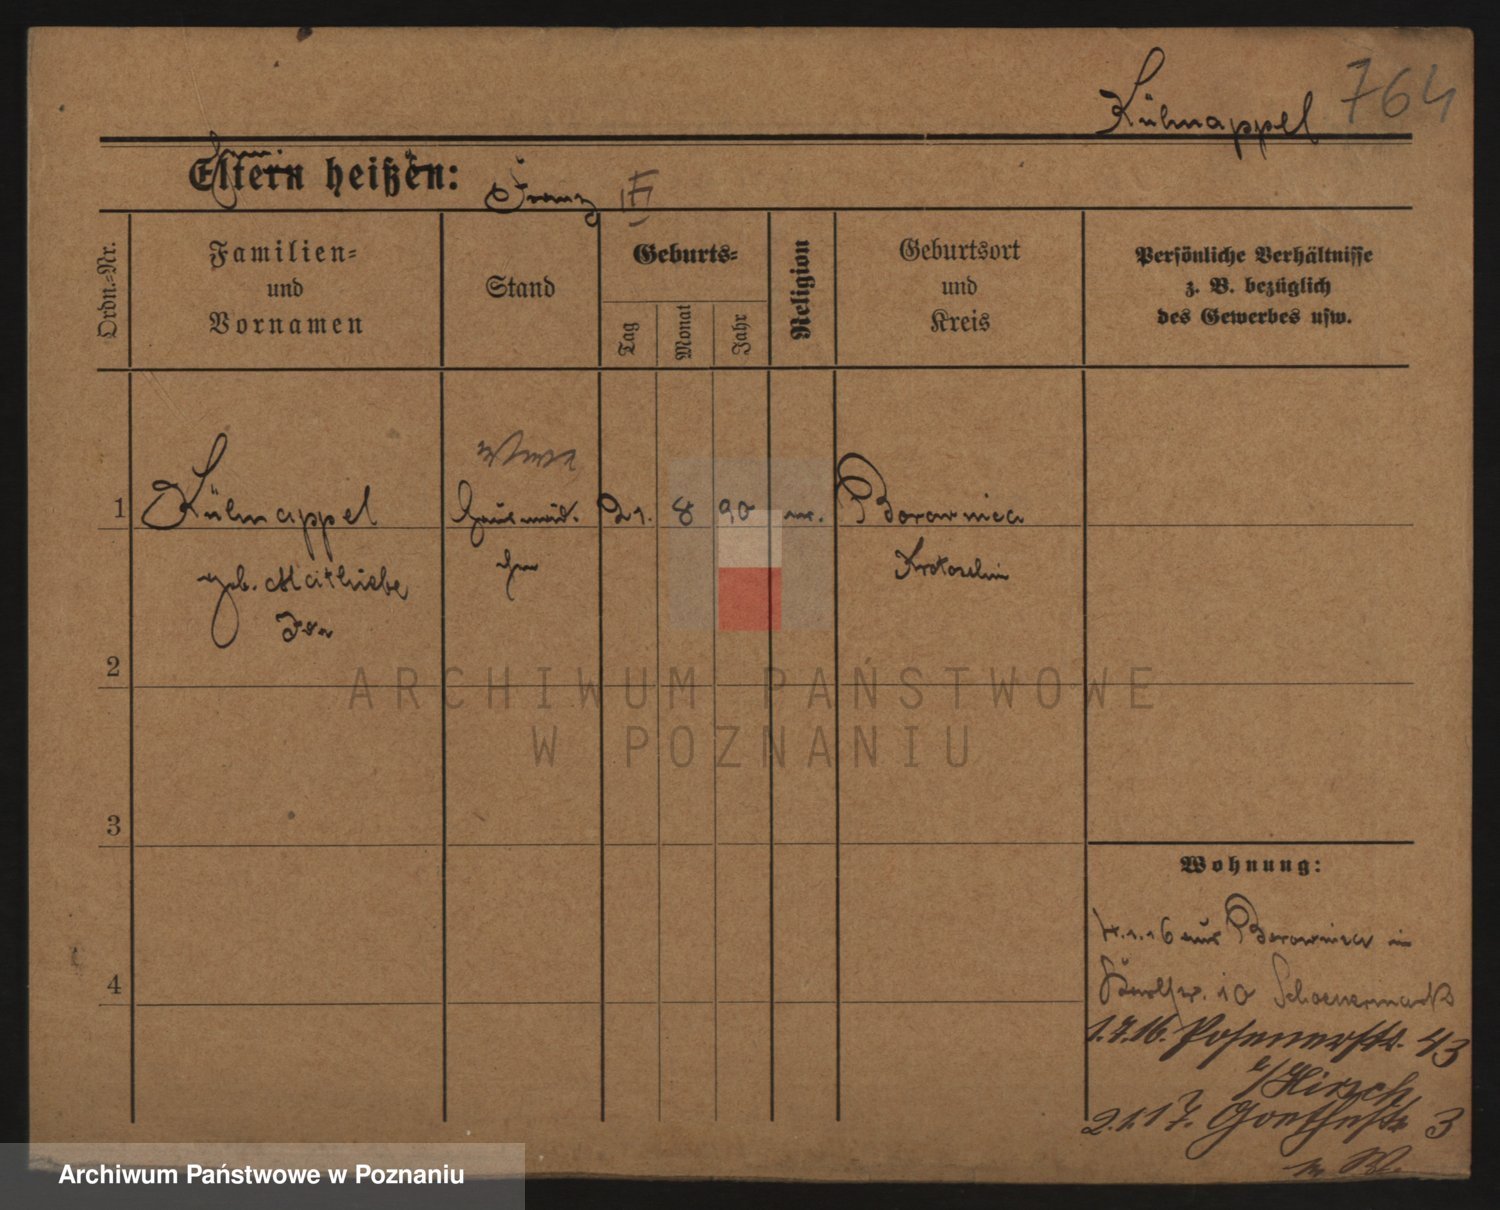 Kühnappel 764
Eltern heißen: Franz
Ordn.-Nr.
Familien-
und
Vornamen
Stand
Geburts-
Tag
Monat
Jahr
Religion
Geburtsort
und
Kreis
Persönliche Verhältnisse
z. B. bezüglich
des Gewerbes usw.
1 Kühnappel 21. 8 90 Borownica
geb. Krotoschin
Ida
2
3
4
Wohnung:
16 aus Borownica in
10 Schoenermark
1.7.16. Posenerstr. 43
b/Hirsch
2.1.17. Goethestr. 3
ARCHIWUM PAŃSTWOWE
W POZNANIU
Archiwum Państwowe w Poznaniu